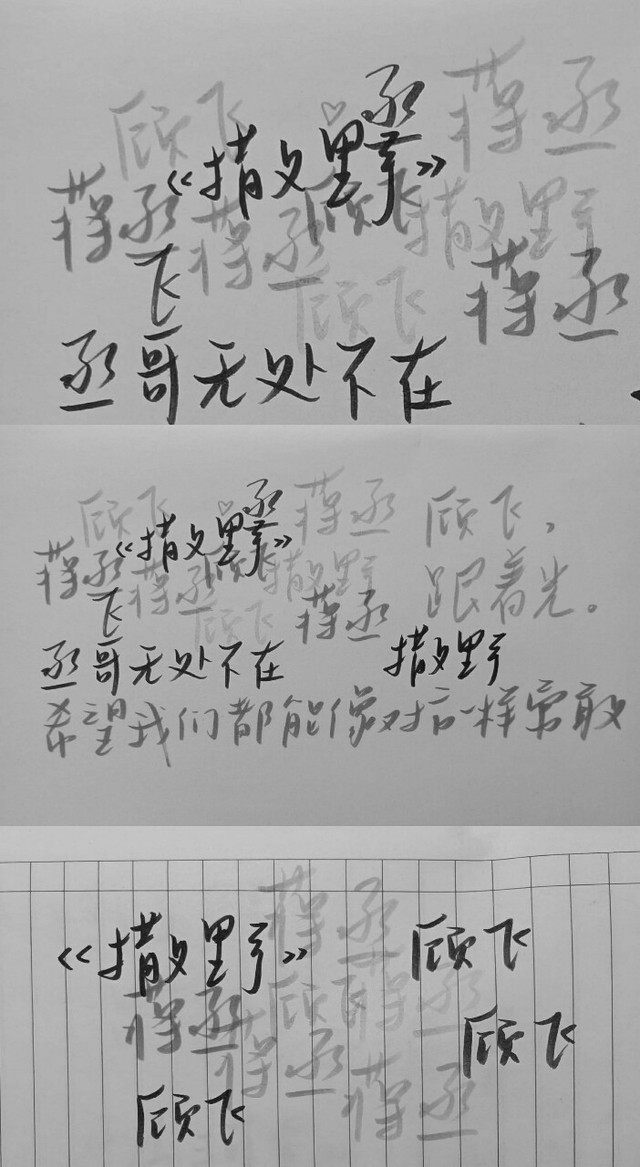 顾飞 ♡ 丞 蒋丞
《撒野》
蒋丞 蒋丞 顾飞 撒野
飞 顾飞 蒋丞
丞哥无处不在
顾飞 ♡ 丞 蒋丞 顾飞，
《撒野》
蒋丞 蒋丞 顾飞 撒野 跟着光。
飞 顾飞 蒋丞
丞哥无处不在 撒野
希望我们都能像对方一样勇敢
蒋丞
《撒野》 顾飞
蒋丞 顾飞 蒋丞
蒋丞 顾飞
顾飞 蒋丞